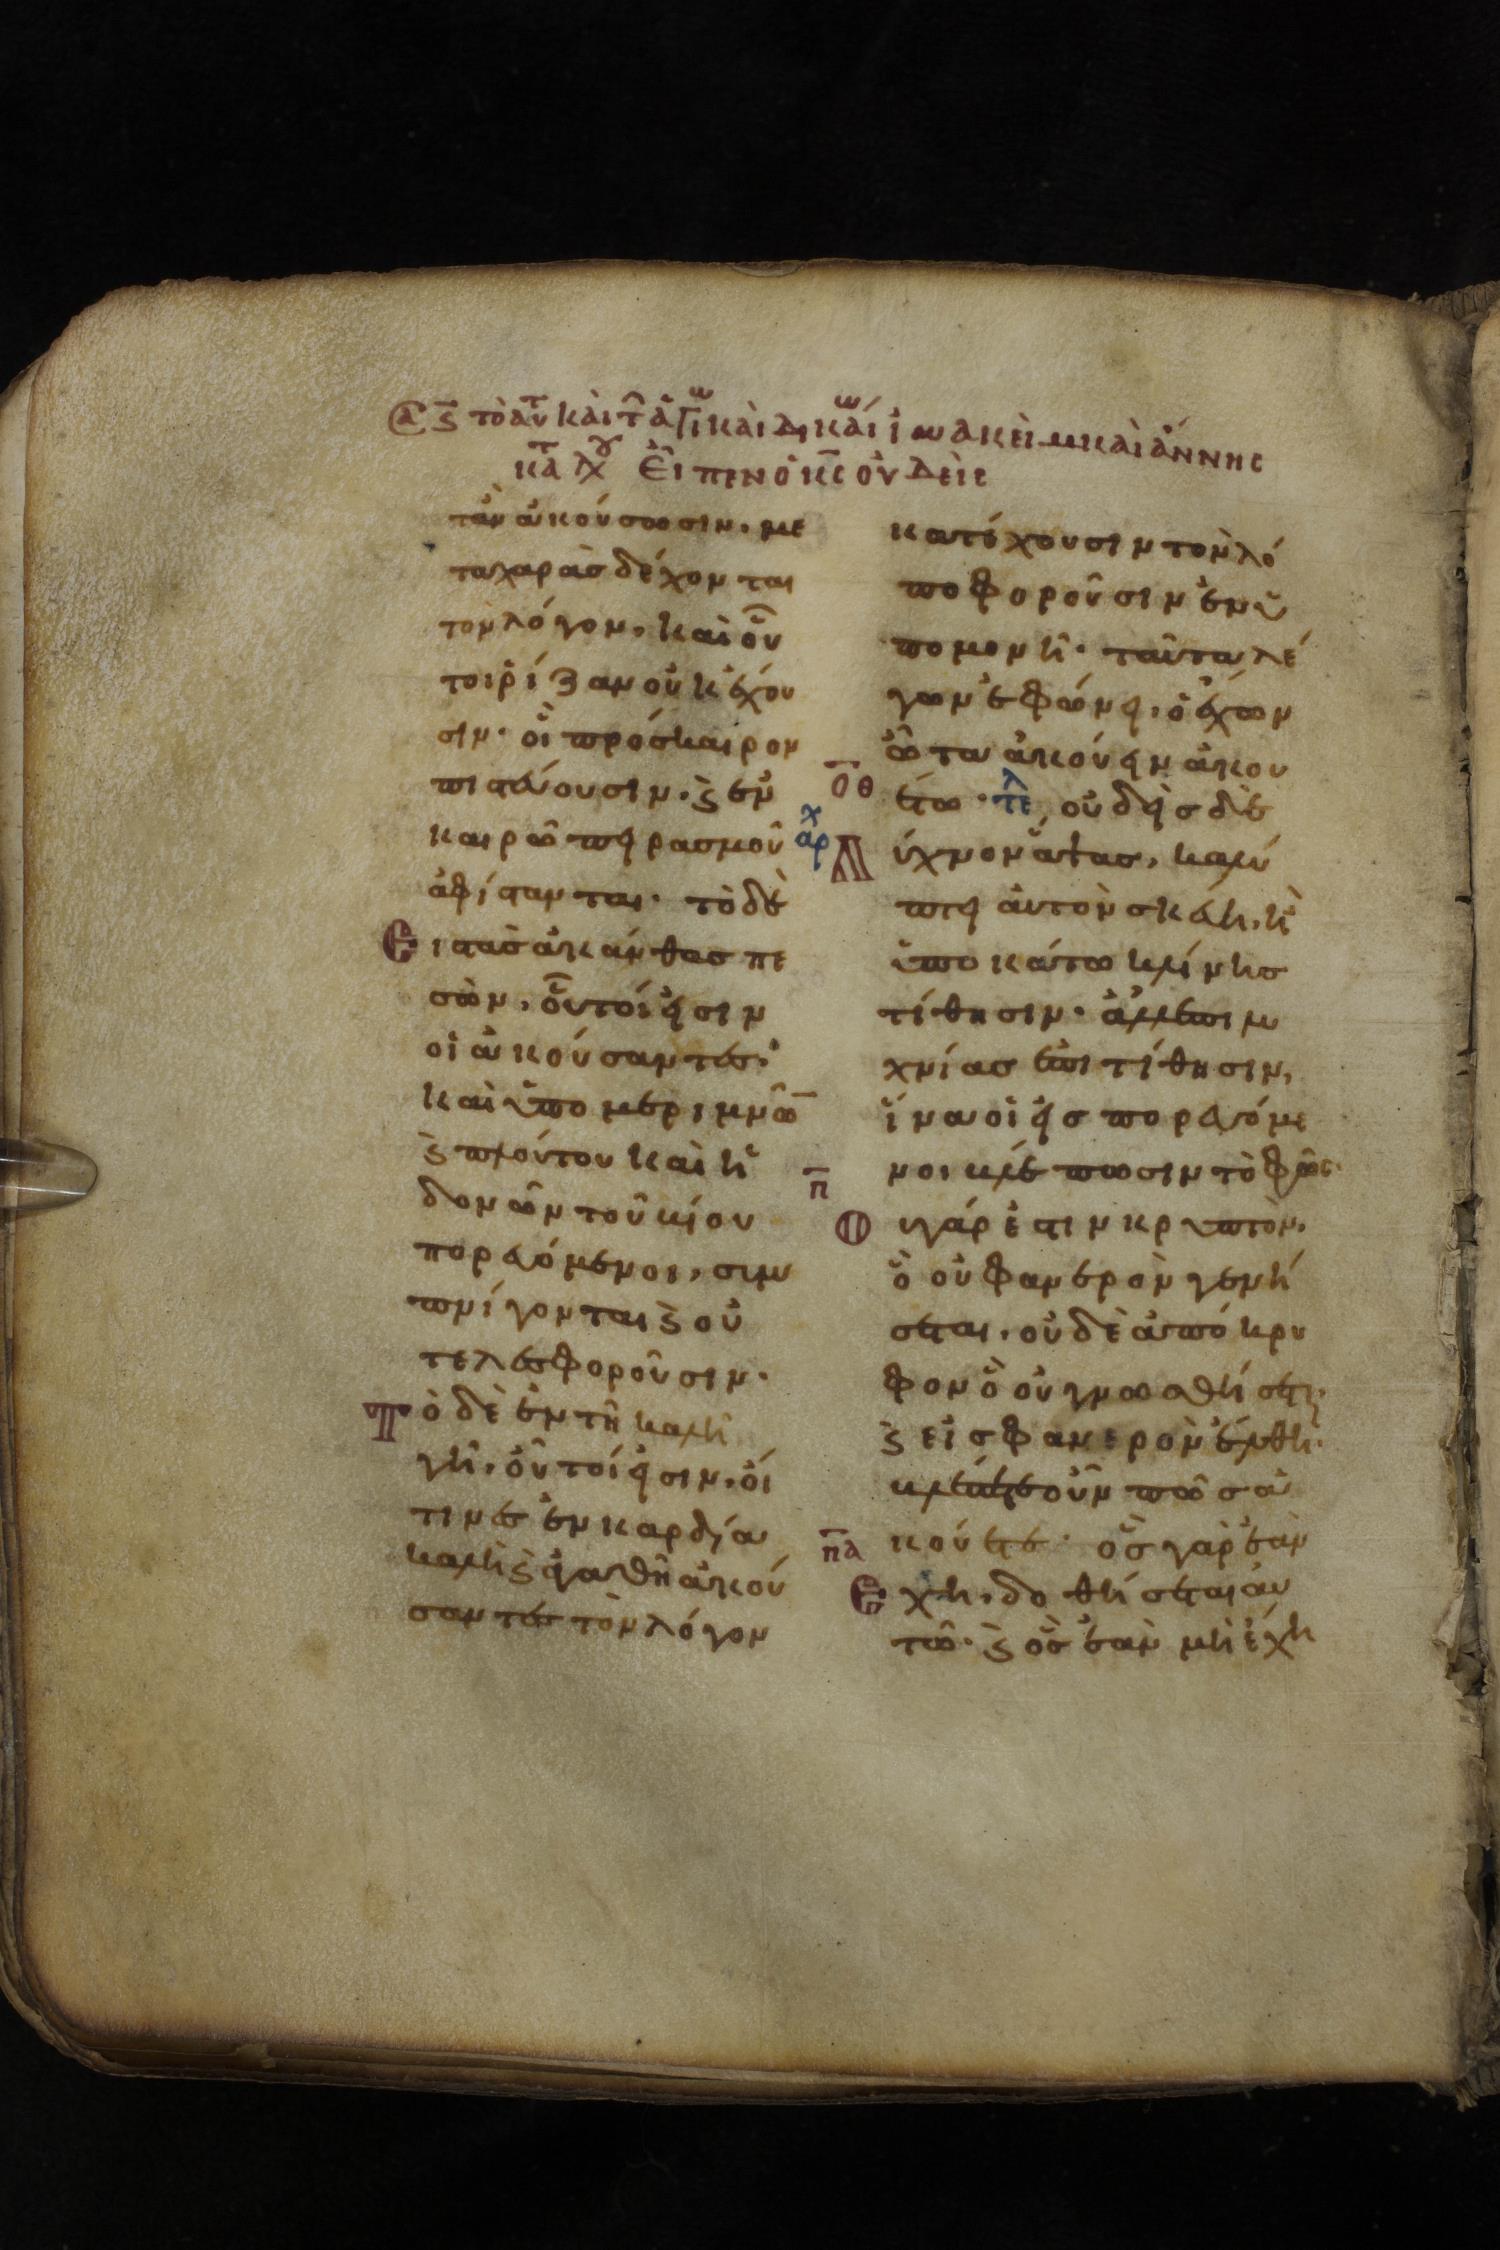 ϛ τὸ αὐτ καὶ τ ἁγί καὶ δικαί ἰωακεὶμ καὶ ἄννης
κατ λου εἶπεν ὁ κς οὐδεὶς
ταν ἀκούσωσιν, με
τα χαρὰς δέχονται
τὸν λόγον, καὶ οὗ
τοι ῥίζαν οὐκ ἔχου
σιν· οἳ πρόσκαιρον
πιστεύουσιν. ϛ ἐν
καιρῶ πειρασμοῦ
ἀφίστανται· τὸ δὲ
εἰς τὰς ἀκάνθας πε
σὼν, οὗτοί εἰσιν
οἱ ἀκούσαντες·
καὶ ὑπο μεριμνῶ̄
ϛ πλούτου καὶ ἡ
δονῶν τοῦ βίου
πορευόμενοι, συμ
πνίγονται ϛ οὐ
τελεσφοροῦσιν·
Τὸ δὲ ἐν τῆ καλῆ
γῆ, οὗτοί εἰσιν, οἵ
τινες ἐν καρδία
καλῆ ϛ ἀγαθῆ ἀκού
σαντες τὸν λόγον
κατέχουσιν τὸν λό
ποφοροῦσιν ἐν ὑ
πομονῆ· ταῦτα λέ
γων ἐφώνει, ὁ ἔχων
ὦτα ἀκούειν ἀκου
οθ
έτω· τελ οὐδεὶς δὲ
αρχ
Λύχνον ἅψας, καλύ
πτει αὐτὸν σκεύει, ἢ
ὑποκάτω κλίνης
τίθησιν· ἀλλ' ἐπι λυ
χνίας ἐπιτίθησιν,
ἵνα οἱ εἰσπορευόμε
νοι βλέπωσιν τὸ φῶς·
π
Οὐ γάρ ἐστιν κρυπτὸν,
ὃ οὐ φανερὸν γενή
σεται, οὐδὲ ἀπόκρυ
φον ὃ οὐ γνωσθήσεται,
ϛ εἰς φανερὸν ἔλθη·
βλέπετε οὖν πῶς ἀ
κούετε· ὃς γὰρ ἐὰν
πα
Ἔχη, δοθήσεται αυ
τῶ· ϛ ὃς ἐὰν μὴ ἔχη